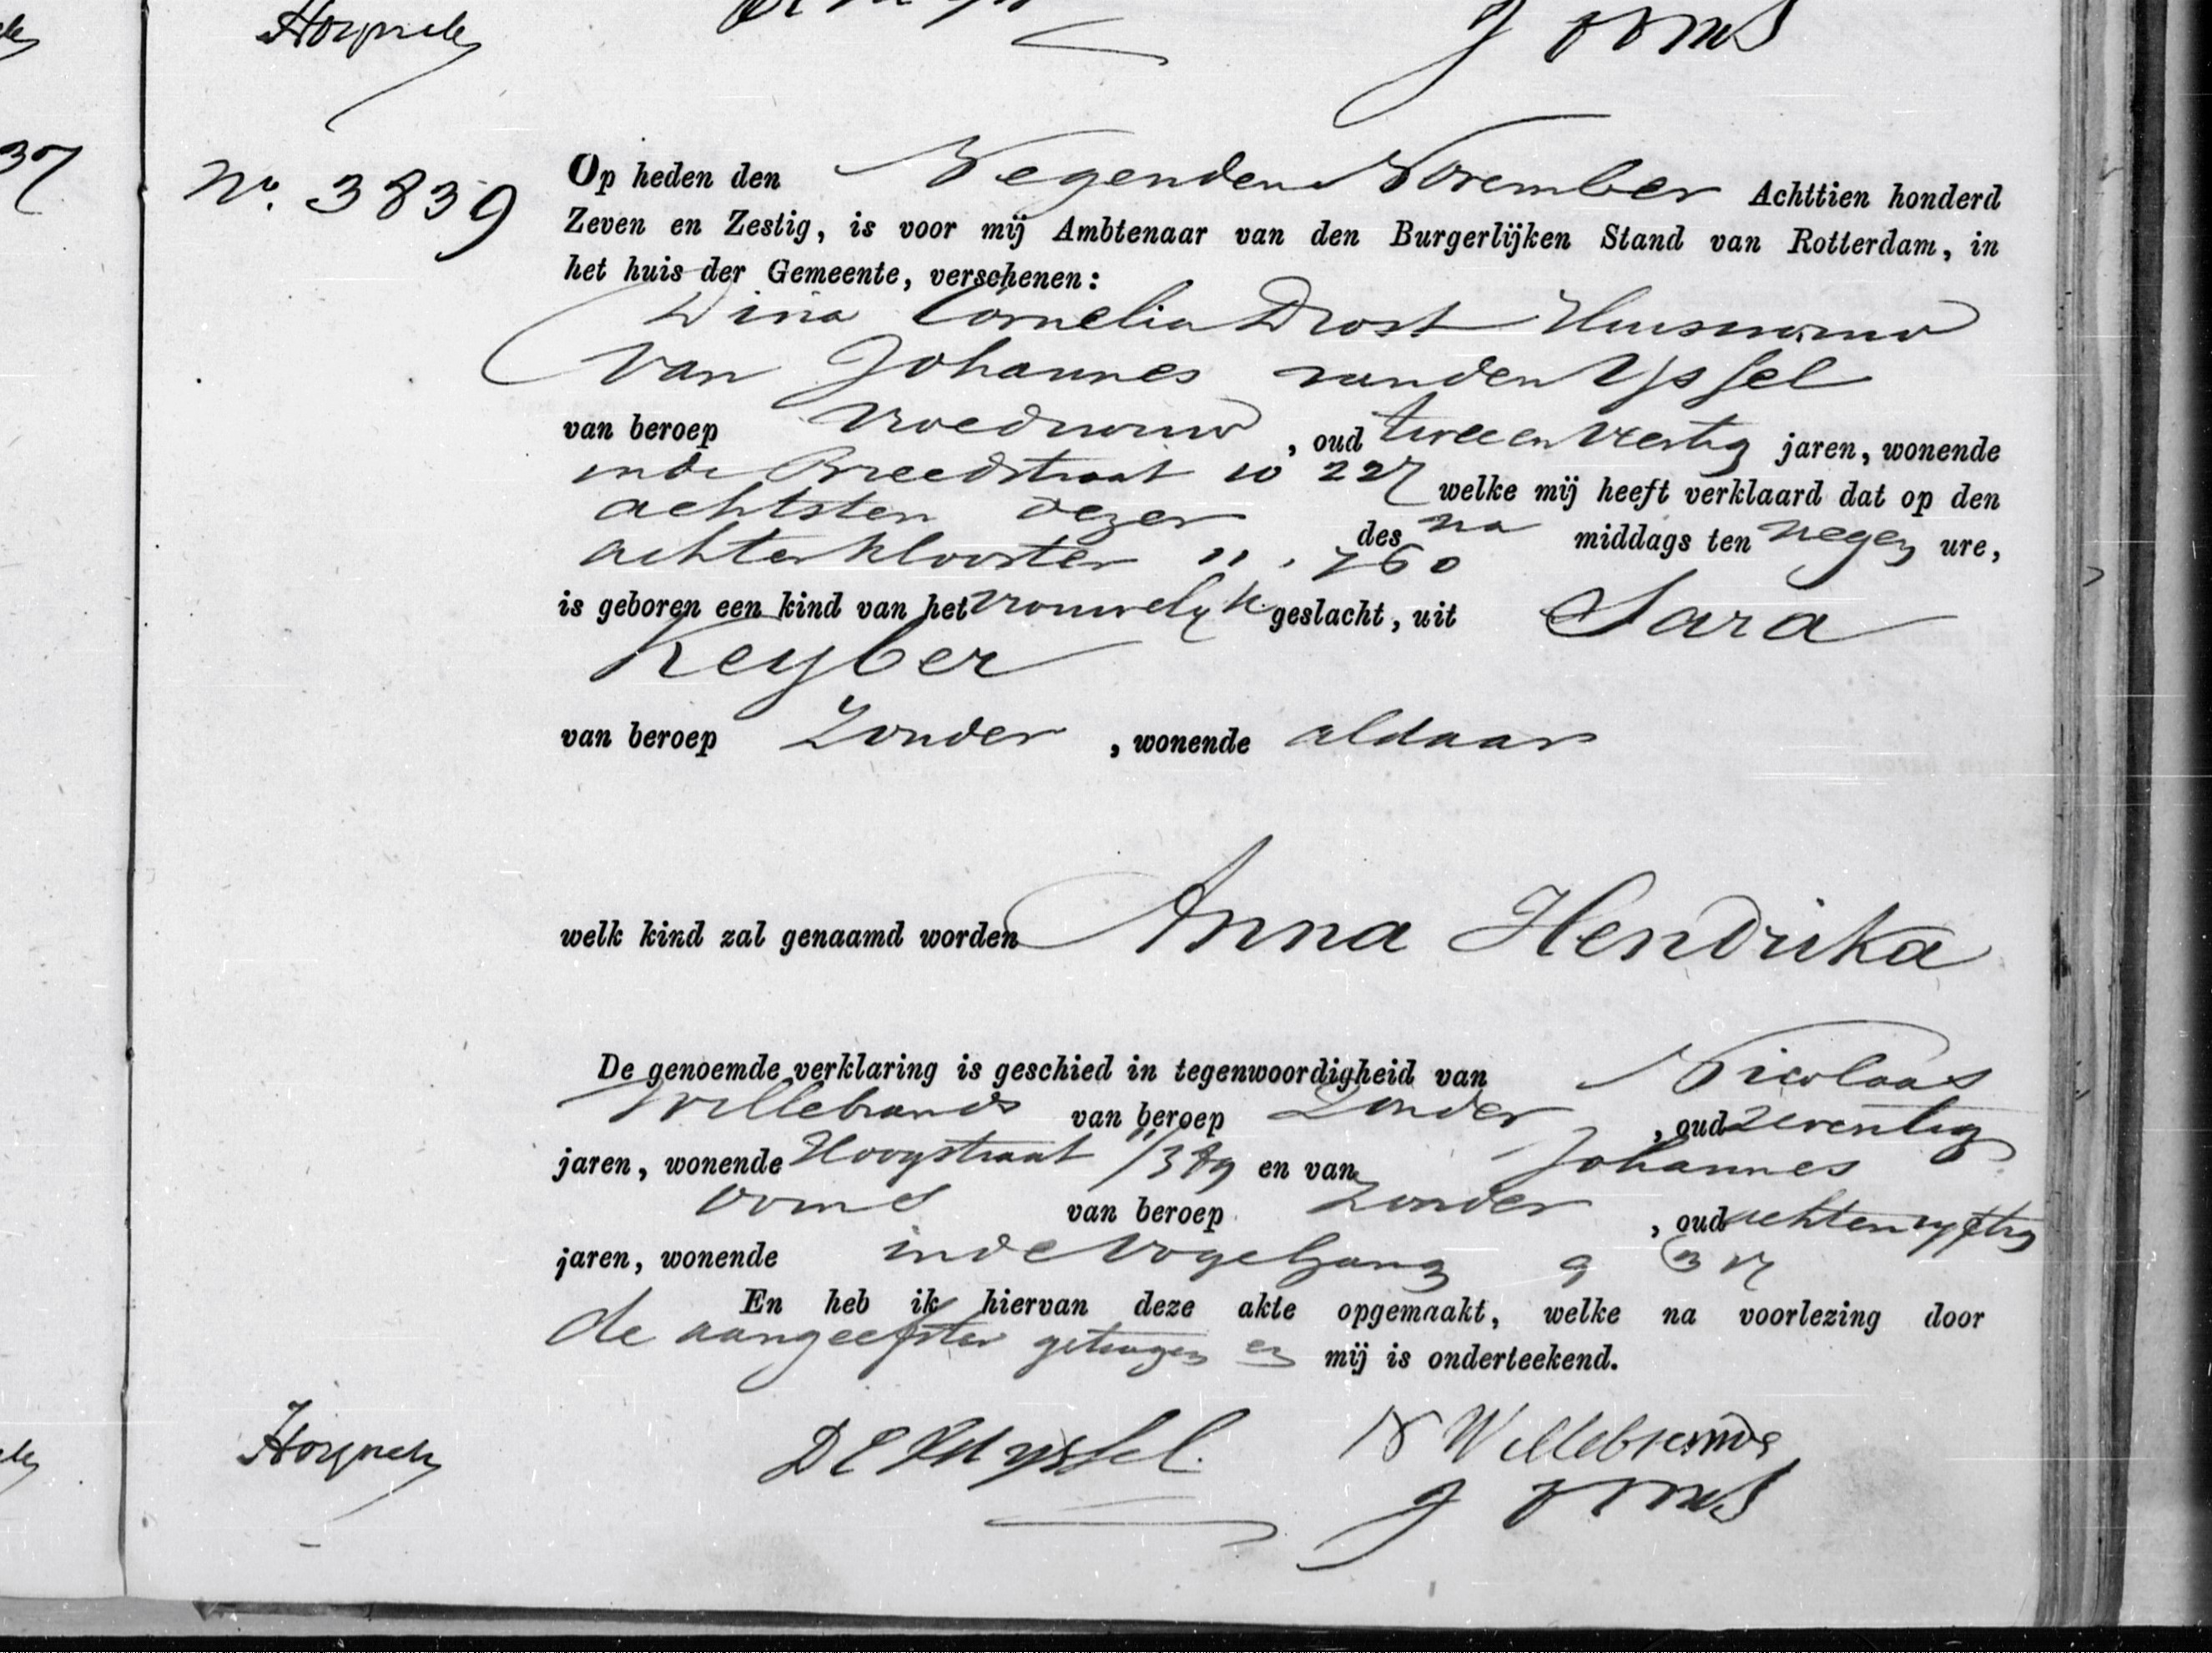 Hoijnck
J Ooms
37
No. 3839
Op heden den Negenden November Achttien honderd
Zeven en Zestig, is voor mij Ambtenaar van den Burgerlijken Stand van Rotterdam, in
het huis der Gemeente, verschenen:
Dina Cornelia Drost Huisvrouw
van Johannes van den Yssel
van beroep Vroedvrouw, oud twee en veertig jaren, wonende
in de Breedstraat 10 227 welke mij heeft verklaard dat op den
achtsten dezer des na middags ten negen ure,
achterklooster 11. 760
is geboren een kind van het vrouwelyk geslacht, uit Sara
Keyber
van beroep Zonder, wonende aldaar
welk kind zal genaamd worden Anna Hendrika
De genoemde verklaring is geschied in tegenwoordigheid van Nicolaas
Willebrands van beroep Zonder, oud zeventig
jaren, wonende Hoogstraat en van Johannes
Ooms van beroep Zonder, oud acht en vyftig
jaren, wonende in de Vogelzang 9
En heb ik hiervan deze akte opgemaakt, welke na voorlezing door
de aangeefster getuigen en mij is onderteekend.
Hoijnck D C Yssel. N Willebrands
J Ooms